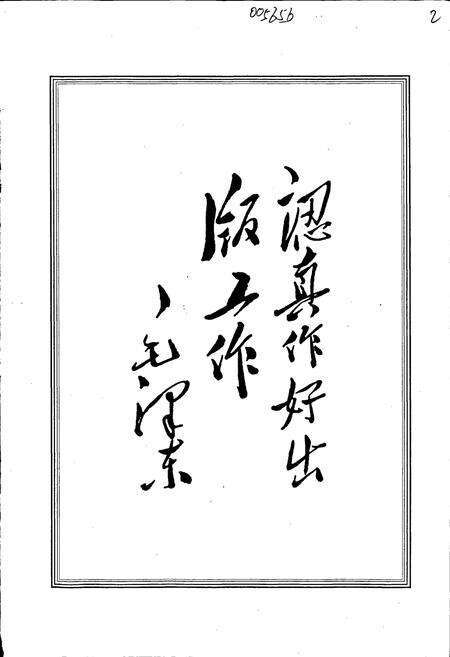 005656
2
認真作好出
版工作
毛澤东